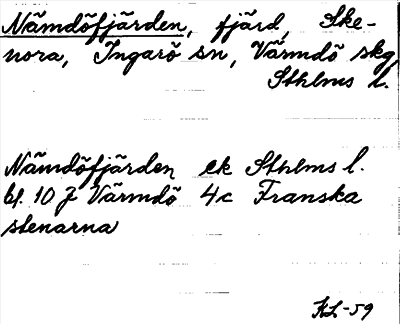 Nämdöfjärden, fjärd, Ske-
nora, Ingarö sn, Värmdö skg,
Sthlms l.
Nämdöfjärden ek Sthlms l.
bl. 10 J Värmdö 4c Franska
stenarna
KL-59